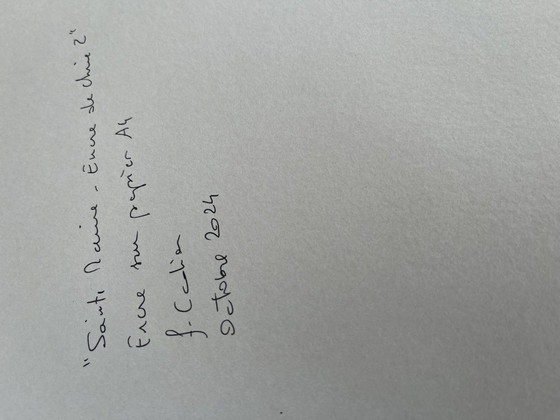 "Sainte Marine - Encre de Chine 2"
Encre sur papier A4
Octobre 2024